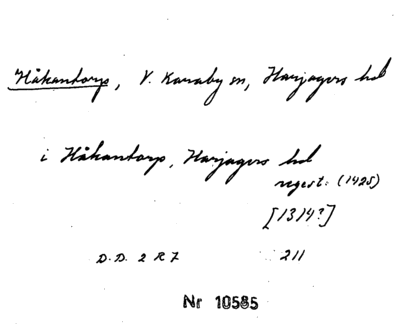 Håkantorp, V. Karaby sn, Harjagers hd
i Håkantorp, Harjagers hd
regest: (1425)
[1314?]
D.D. 2 R 7 211
Nr 10585